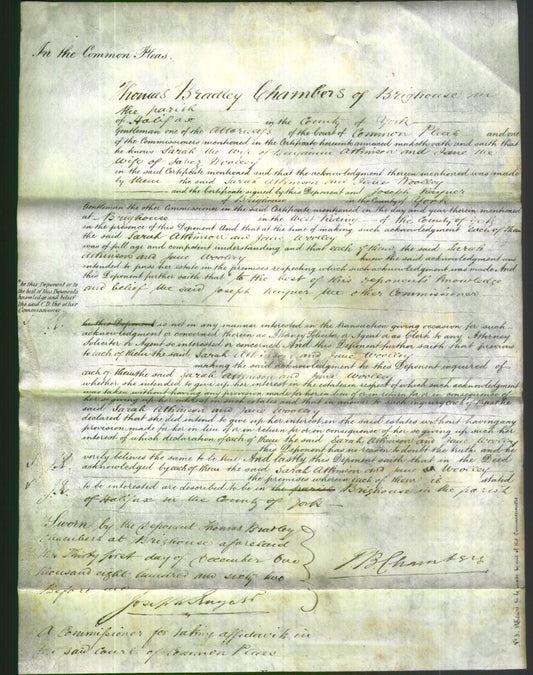 In the Common Pleas.
Thomas Bradley Chambers of Brighouse in
the parish
of Halifax in the County of York
Gentleman one of the Attorneys of the Court of Common Pleas and one
of the Commissioners mentioned in the Certificate hereunto annexed maketh oath and saith that
he knows Sarah the Wife of Benjamin Atkinson and Jane the
Wife of Jabez Woolley
in the said Certificate mentioned and that the acknowledgment therein mentioned was made
by them the said Sarah Atkinson and Jane Woolley
and the Certificate signed by this Deponent and Joseph
of Brighouse in the County of York
Gentleman the other Commissioner in the said Certificate mentioned on the day and year therein mentioned
at Brighouse in the West Riding of the County of York
in the presence of this Deponent And that at the time of making such acknowledgment each of them
the said Sarah Atkinson and Jane Woolley
was of full age and competent understanding and that each of them the said Sarah
Atkinson and Jane Woolley knew the said acknowledgment was
intended to pass her estate in the premises respecting which such acknowledgment was made. And
this Deponent further saith that to the best of this Deponent's knowledge
and belief the said Joseph the other Commissioner
*he this Deponent or to
the best of this Deponents
knowledge and belief
the said C.D. the other
Commissioner
he this Deponent is not in any manner interested in the transaction giving occasion for such
acknowledgment or concerned therein as Attorney Solicitor or Agent or as Clerk to any Attorney
Solicitor or Agent so interested or concerned And this Deponent further saith that previous
to each of them the said Sarah Atkinson and Jane Woolley
making the said acknowledgment he this Deponent inquired of
each of them the said Sarah Atkinson and Jane Woolley
whether she intended to give up her interest in the estate in respect of which such acknowledgment
was taken without having any provision made for her in lieu of or in return for or in consequence of
her so giving up her interest in such estate and that in answer to such inquiry each of them the
said Sarah Atkinson and Jane Woolley
declared that she did intend to give up her interest in the said estate without having any
provision made for her in lieu of or in return for or in consequence of her so giving up such her
interest of which declaration of each of them the said Sarah Atkinson and Jane Woolley
this Deponent has no reason to doubt the truth and he
verily believes the same to be true And lastly this Deponent saith that in the Deed
acknowledged by each of them the said Sarah Atkinson and Jane Woolley
the premises wherein each of them is stated
to be interested are described to be in the parish Brighouse in the parish
of Halifax in the County of York
Sworn by the Deponent Thomas Bradley
Chambers at Brighouse aforesaid
this Thirty first day of December One
thousand eight hundred and sixty two
Before me
T B Chambers
Joseph
A Commissioner for taking affidavits in
the said Court of Common Pleas